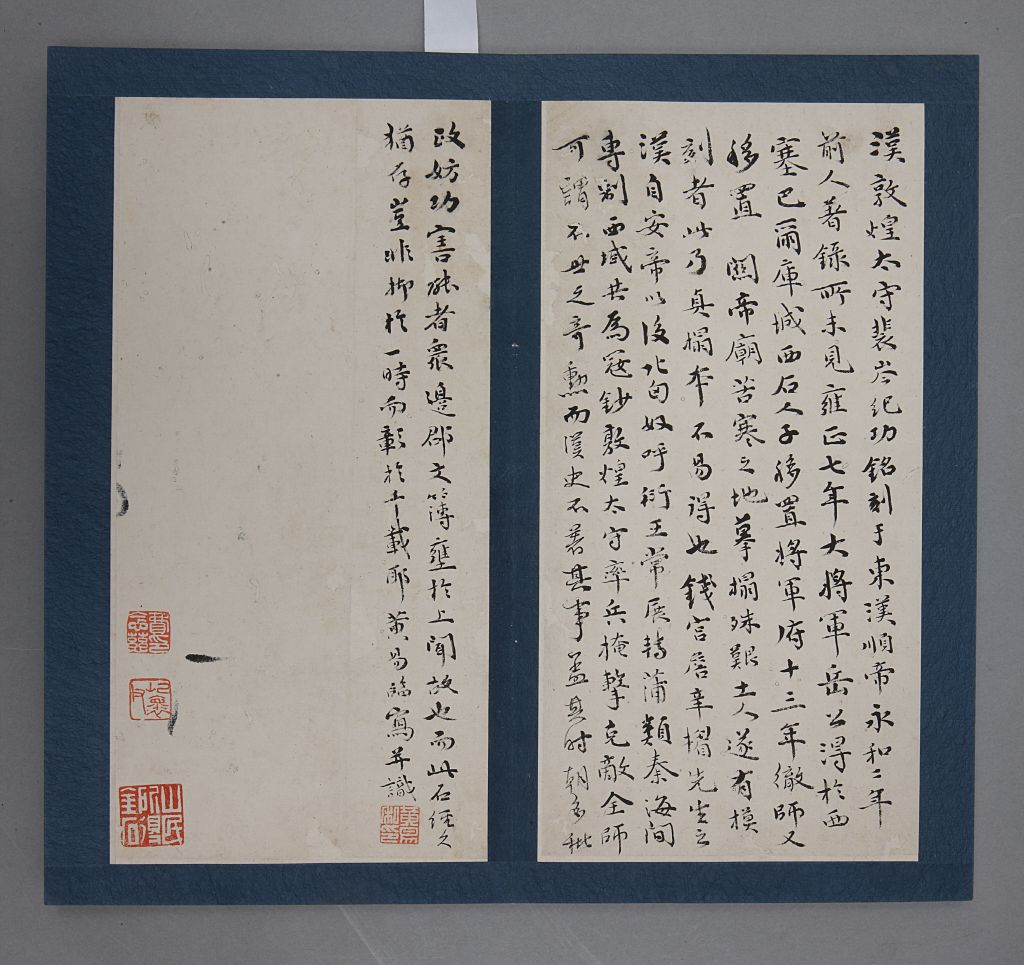 漢敦煌太守裴岑紀功銘刻于東漢順帝永和二年
前人著錄所未見雍正七年大將軍岳公淂於西
塞巴爾庫城西石人子移置將軍府十三年徹師又
移置 關帝廟苦寒之地摹搨殊艱土人遂有模
刻者此乃真搨本不易得也錢宫詹辛楣先生云
漢自安帝以後北匈奴呼衍王常展轉蒲類秦海間
專制西域共為寇鈔敦煌太守率兵掩擊克敵全師
可謂不世之奇勳而漢史不著其事蓋其时朝多秕
政妨功害能者衆邊郡文簿壅於上聞故也而此石經久
猶存豈非抑於一時而彰於千載耶黄易臨寫并識